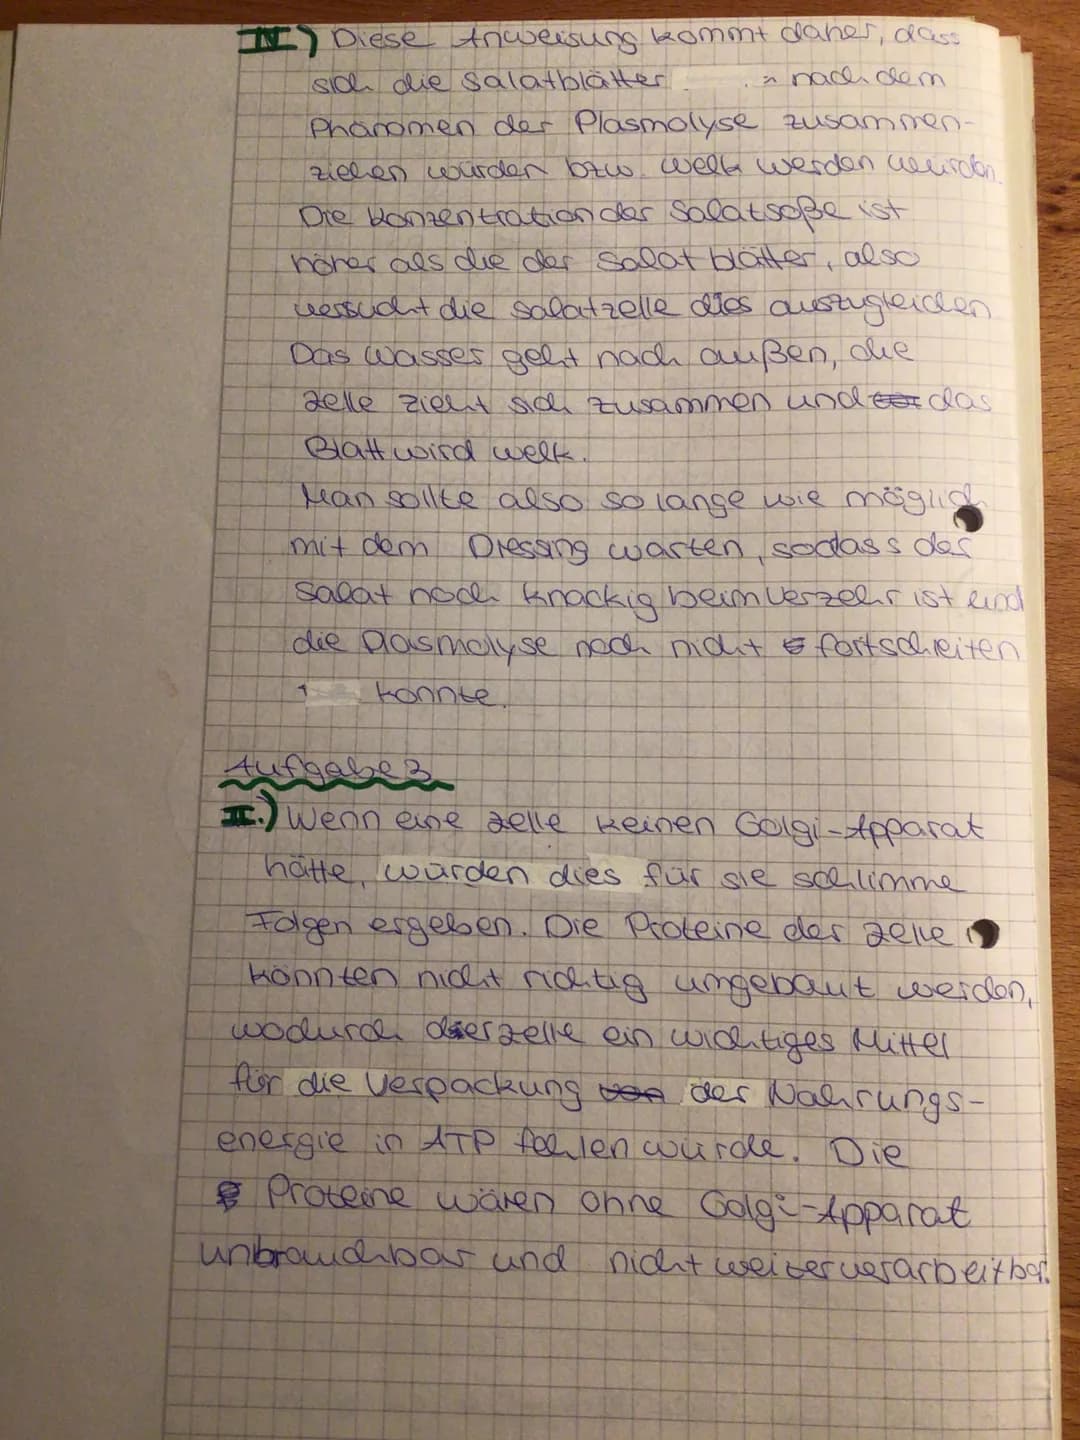 IV.) Diese Anweisung kommt daher, dass
sich die Salatblätter nach dem
Phänomen der Plasmolyse zusammen-
ziehen würden bzw. welk werden würden.
Die Konzentration der Salatsoße ist
höher als die der Salatblätter, also
versucht die Salatzelle dies auszugleichen
Das Wasser geht nach außen, die
Zelle zieht sich zusammen und das
Blatt wird welk.
Man sollte also so lange wie möglich
mit dem Dressing warten, sodass der
Salat noch knackig beim Verzehr ist und
die Plasmolyse noch nicht fortschreiten
konnte.
Aufgabe 3
II.) Wenn eine Zelle keinen Golgi-Apparat
hätte, würden dies für sie schlimme
Folgen ergeben. Die Proteine der Zelle
könnten nicht richtig umgebaut werden,
wodurch der Zelle ein wichtiges Mittel
für die Verpackung der Nahrungs-
energie in ATP fehlen würde. Die
Proteine wären ohne Golgi-Apparat
unbrauchbar und nicht weiterverarbeitbar.